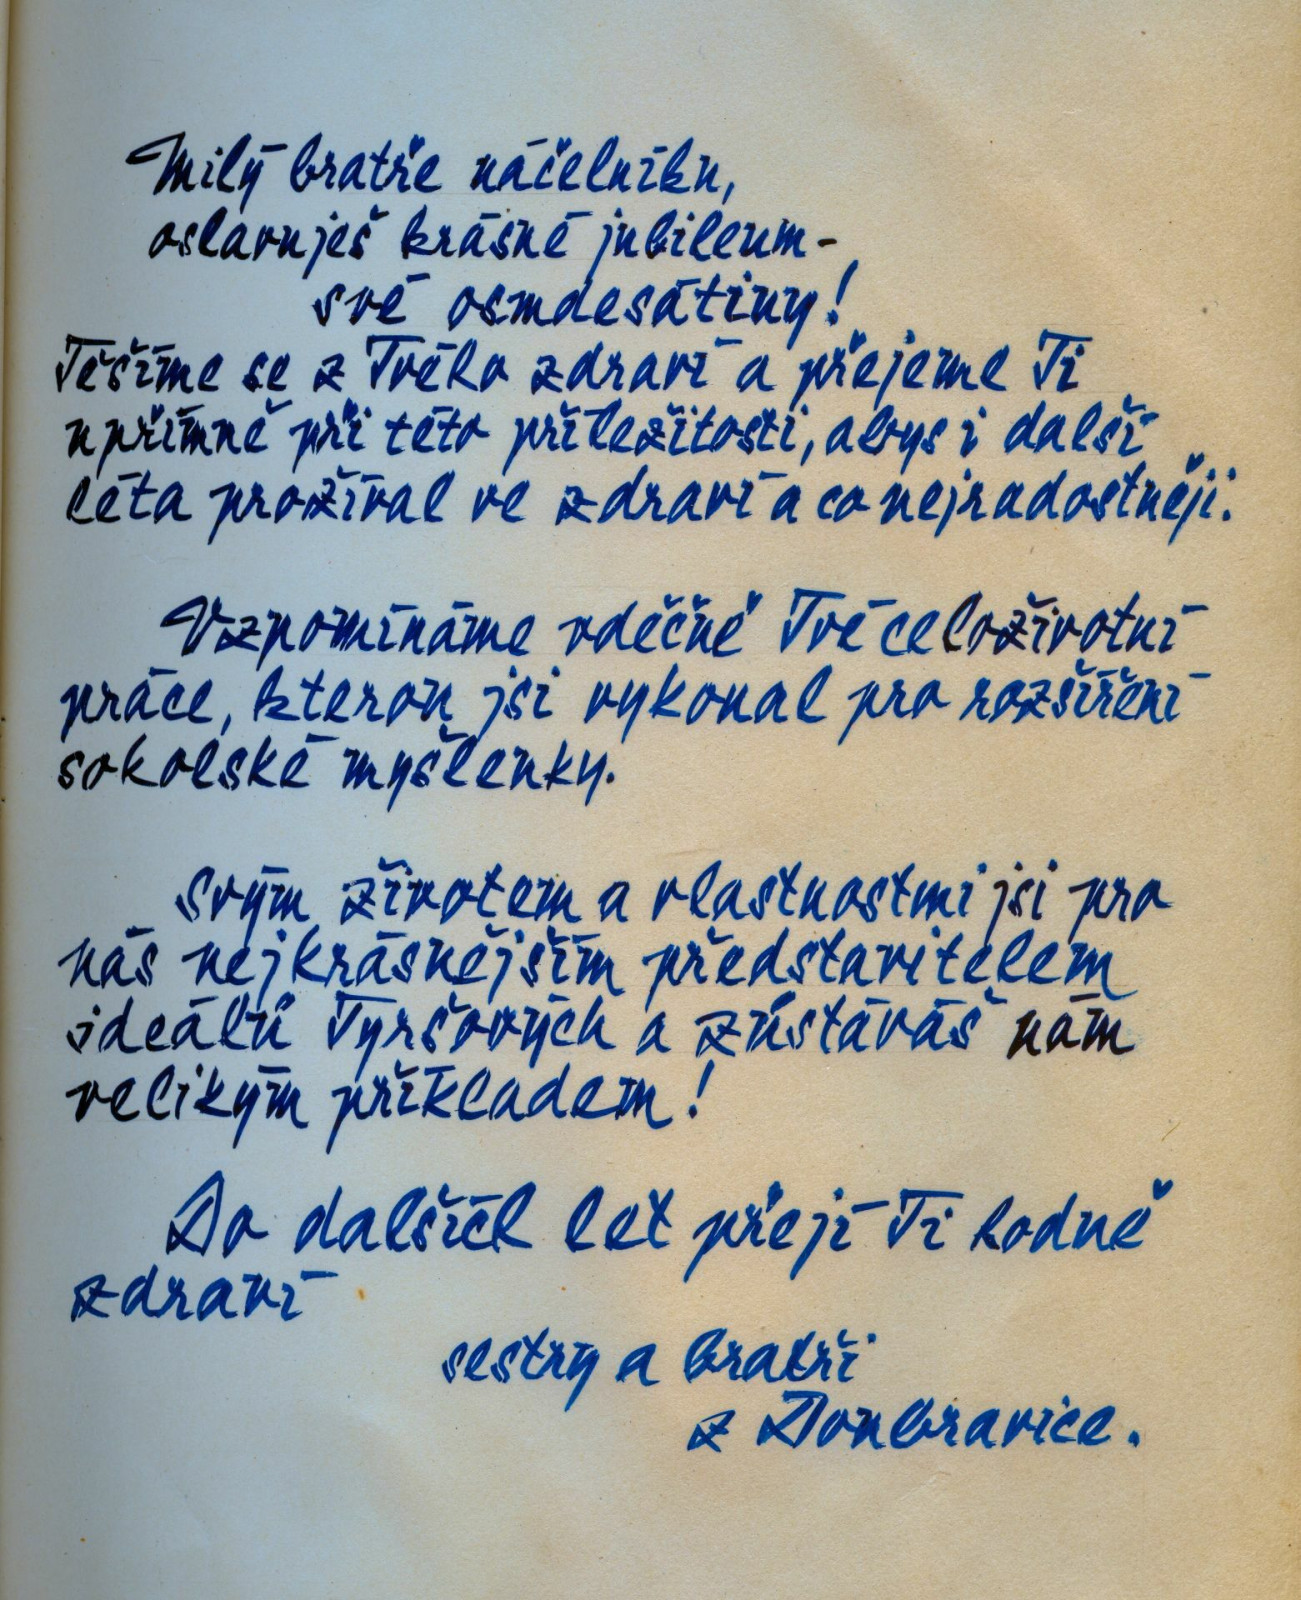 Milý bratře náčelníku,
oslavuješ krásné jubileum-
své osmdesátiny!
Těšíme se z Tvého zdraví a přejeme Ti
upřímně při této příležitosti, abys i další
léta prožíval ve zdraví a co nejradostněji.
Vzpomínáme vděčně Tvé celoživotní
práce, kterou jsi vykonal pro rozšíření
sokolské myšlenky.
Svým životem a vlastnostmi jsi pro
nás nejkrásnějším představitelem
ideálů Tyršových a zůstáváš nám
velikým příkladem!
Do dalších let přejí Ti hodně
zdraví
sestry a bratři
z Doubravice.